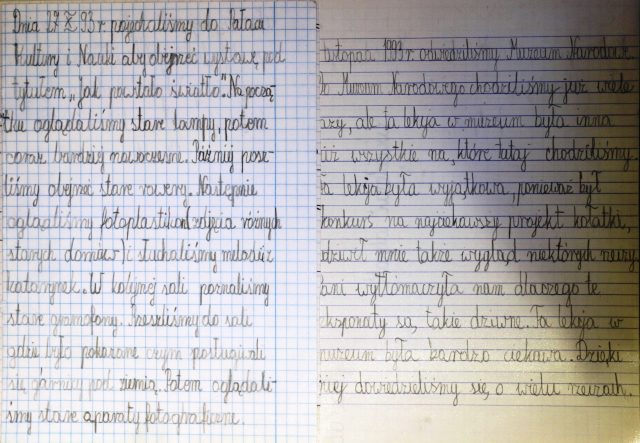 Dnia 27 X 93 r pojechaliśmy do Pałacu
Kultury i Nauki aby obejrzeć wystawę pod
tytułem „Jak powstało światło". Na począ
tku oglądaliśmy stare lampy, potem
coraz bardziej nowoczesne. Później posz
liśmy obejrzeć stare rowery. Następnie
oglądaliśmy fotoplastikon (zdjęcia różnych
starych domków) i słuchaliśmy melodii z
katarynek. W kolejnej sali poznaliśmy
stare gramofony. Przeszliśmy do sali
gdzie było pokazane czym posługiwali
się górnicy pod ziemią. Potem oglądali-
śmy stare aparaty fotograficzne.
listopada 1993 r. odwiedziliśmy Muzeum Narodowe.
Do Muzeum Narodowego chodziliśmy już wiele
razy, ale ta lekcja w muzeum była inna
niż wszystkie na, które tutaj chodziliśmy.
Ta lekcja była wyjątkowa, ponieważ był
konkurs na najciekawszy projekt kołatki,
zdziwił mnie także wygląd niektórych rzeczy.
Pani wytłomaczyła nam dlaczego te
eksponaty są takie dziwne. Ta lekcja w
muzeum była bardzo ciekawa. Dzięki
niej dowiedzieliśmy się o wielu rzeczach.